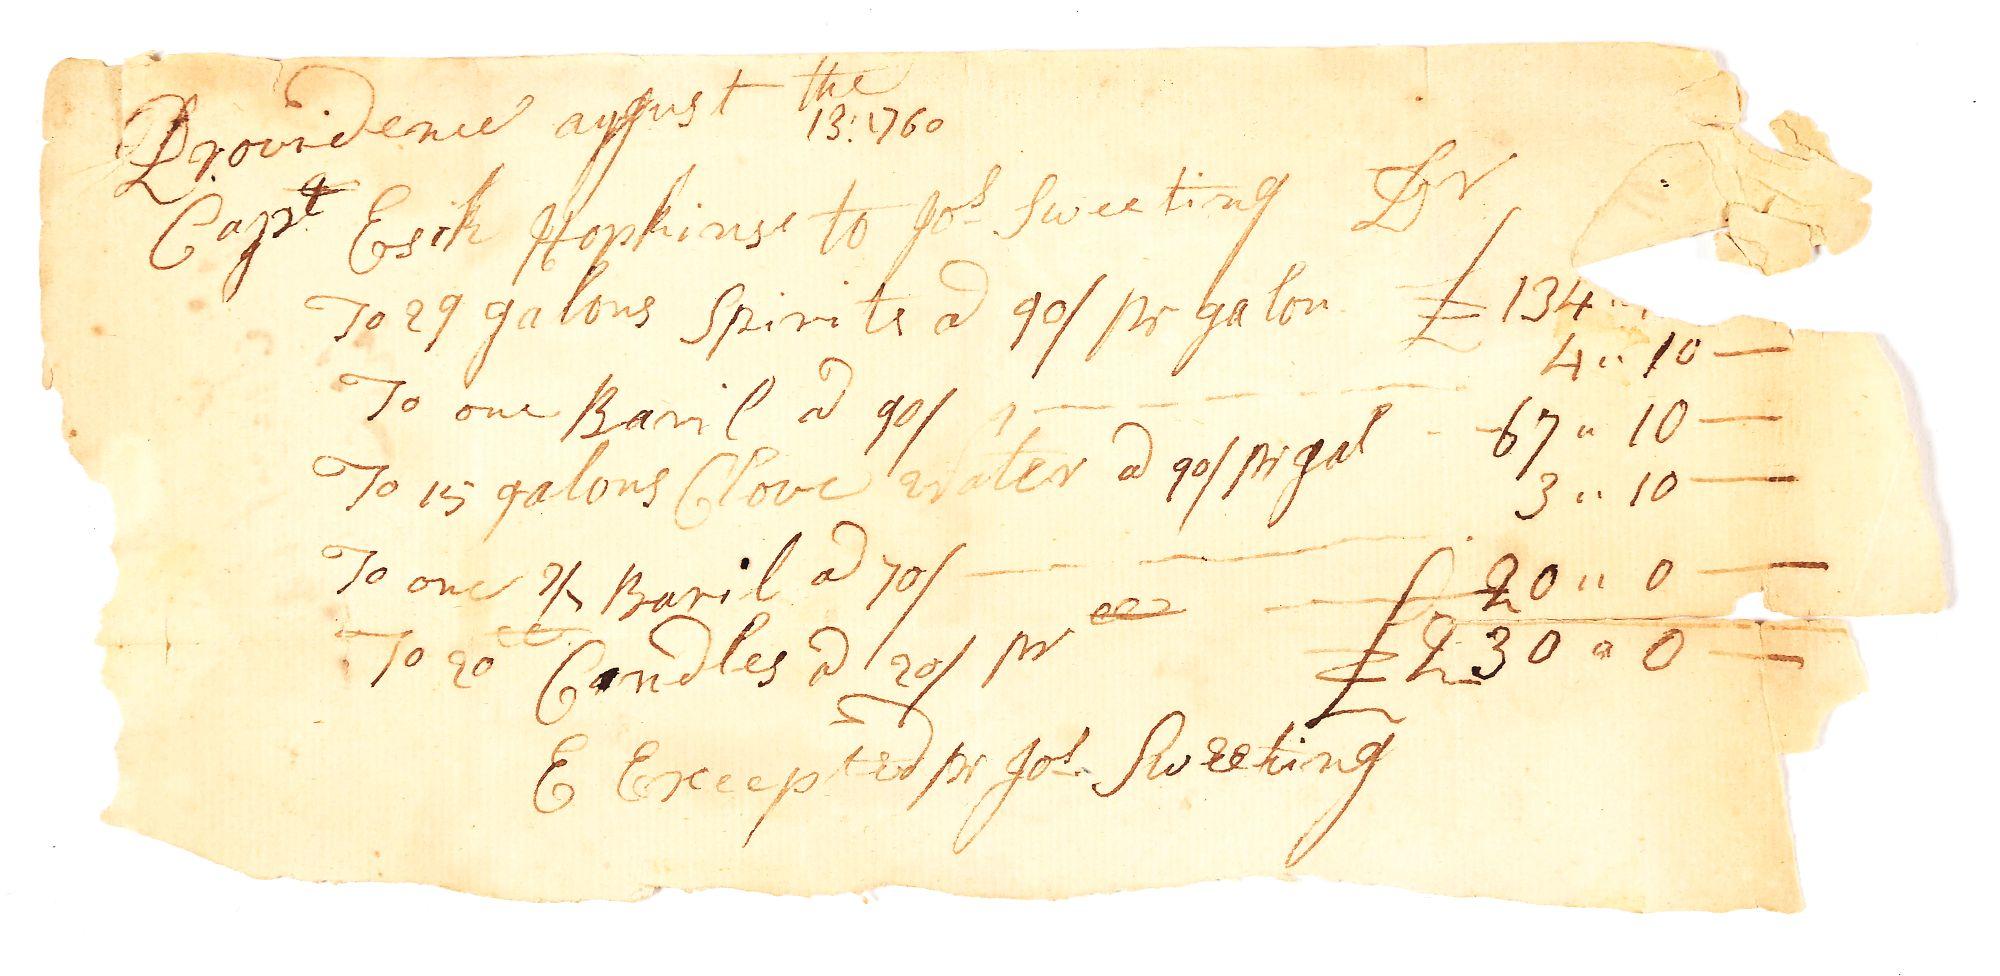 Providence august the 13: 1760
Capt Esik Hopkinse to Jos Sweeting Dr
To 29 galons Spirits a 90/ pr galon £134"
To one Baril a 90/ 4"10—
To 15 galons Clove water a 90/ pr gal 67"10—
To one 1/2 Baril a 70/ 3"10
To 20 Candles a 20/ pr 20"0—
£230"0—
E Excepted pr Jos Sweeting